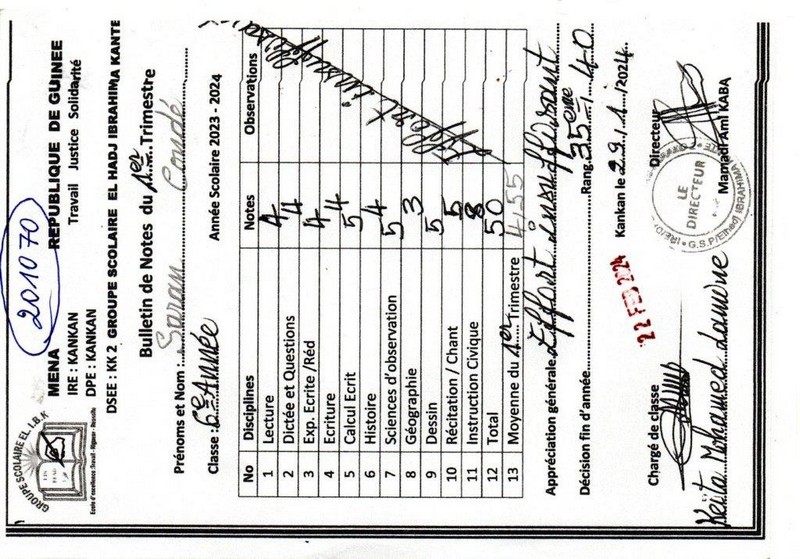 201070
MENA REPUBLIQUE DE GUINEE
IRE : KANKAN Travail Justice Solidarité
DPE : KANKAN
DSEE : KK 2 GROUPE SCOLAIRE EL HADJ IBRAHIMA KANTE
GROUPE SCOLAIRE EL. I.B.K
Bulletin de Notes du 1er Trimestre
Prénoms et Nom : Saran Condé
Classe : 6e Année Année Scolaire 2023 - 2024
No Disciplines Notes Observations
1 Lecture 4
2 Dictée et Questions 4
3 Exp. Ecrite /Réd 4
4 Ecriture 4
5 Calcul Ecrit 5
6 Histoire 4
7 Sciences d'observation 5
8 Géographie 3
9 Dessin 5
10 Récitation / Chant 5
11 Instruction Civique 8
12 Total 50
13 Moyenne du 1er Trimestre 4,55
Effort insuffisa
Appréciation générale Effort insuffisant
Décision fin d'année Rang 35eme / 40
Kankan le 29/1/2024
22 FEB 2024
Chargé de classe Directeur
LE DIRECTEUR
Keita Mohamed Lamine Mamadi Ami KABA